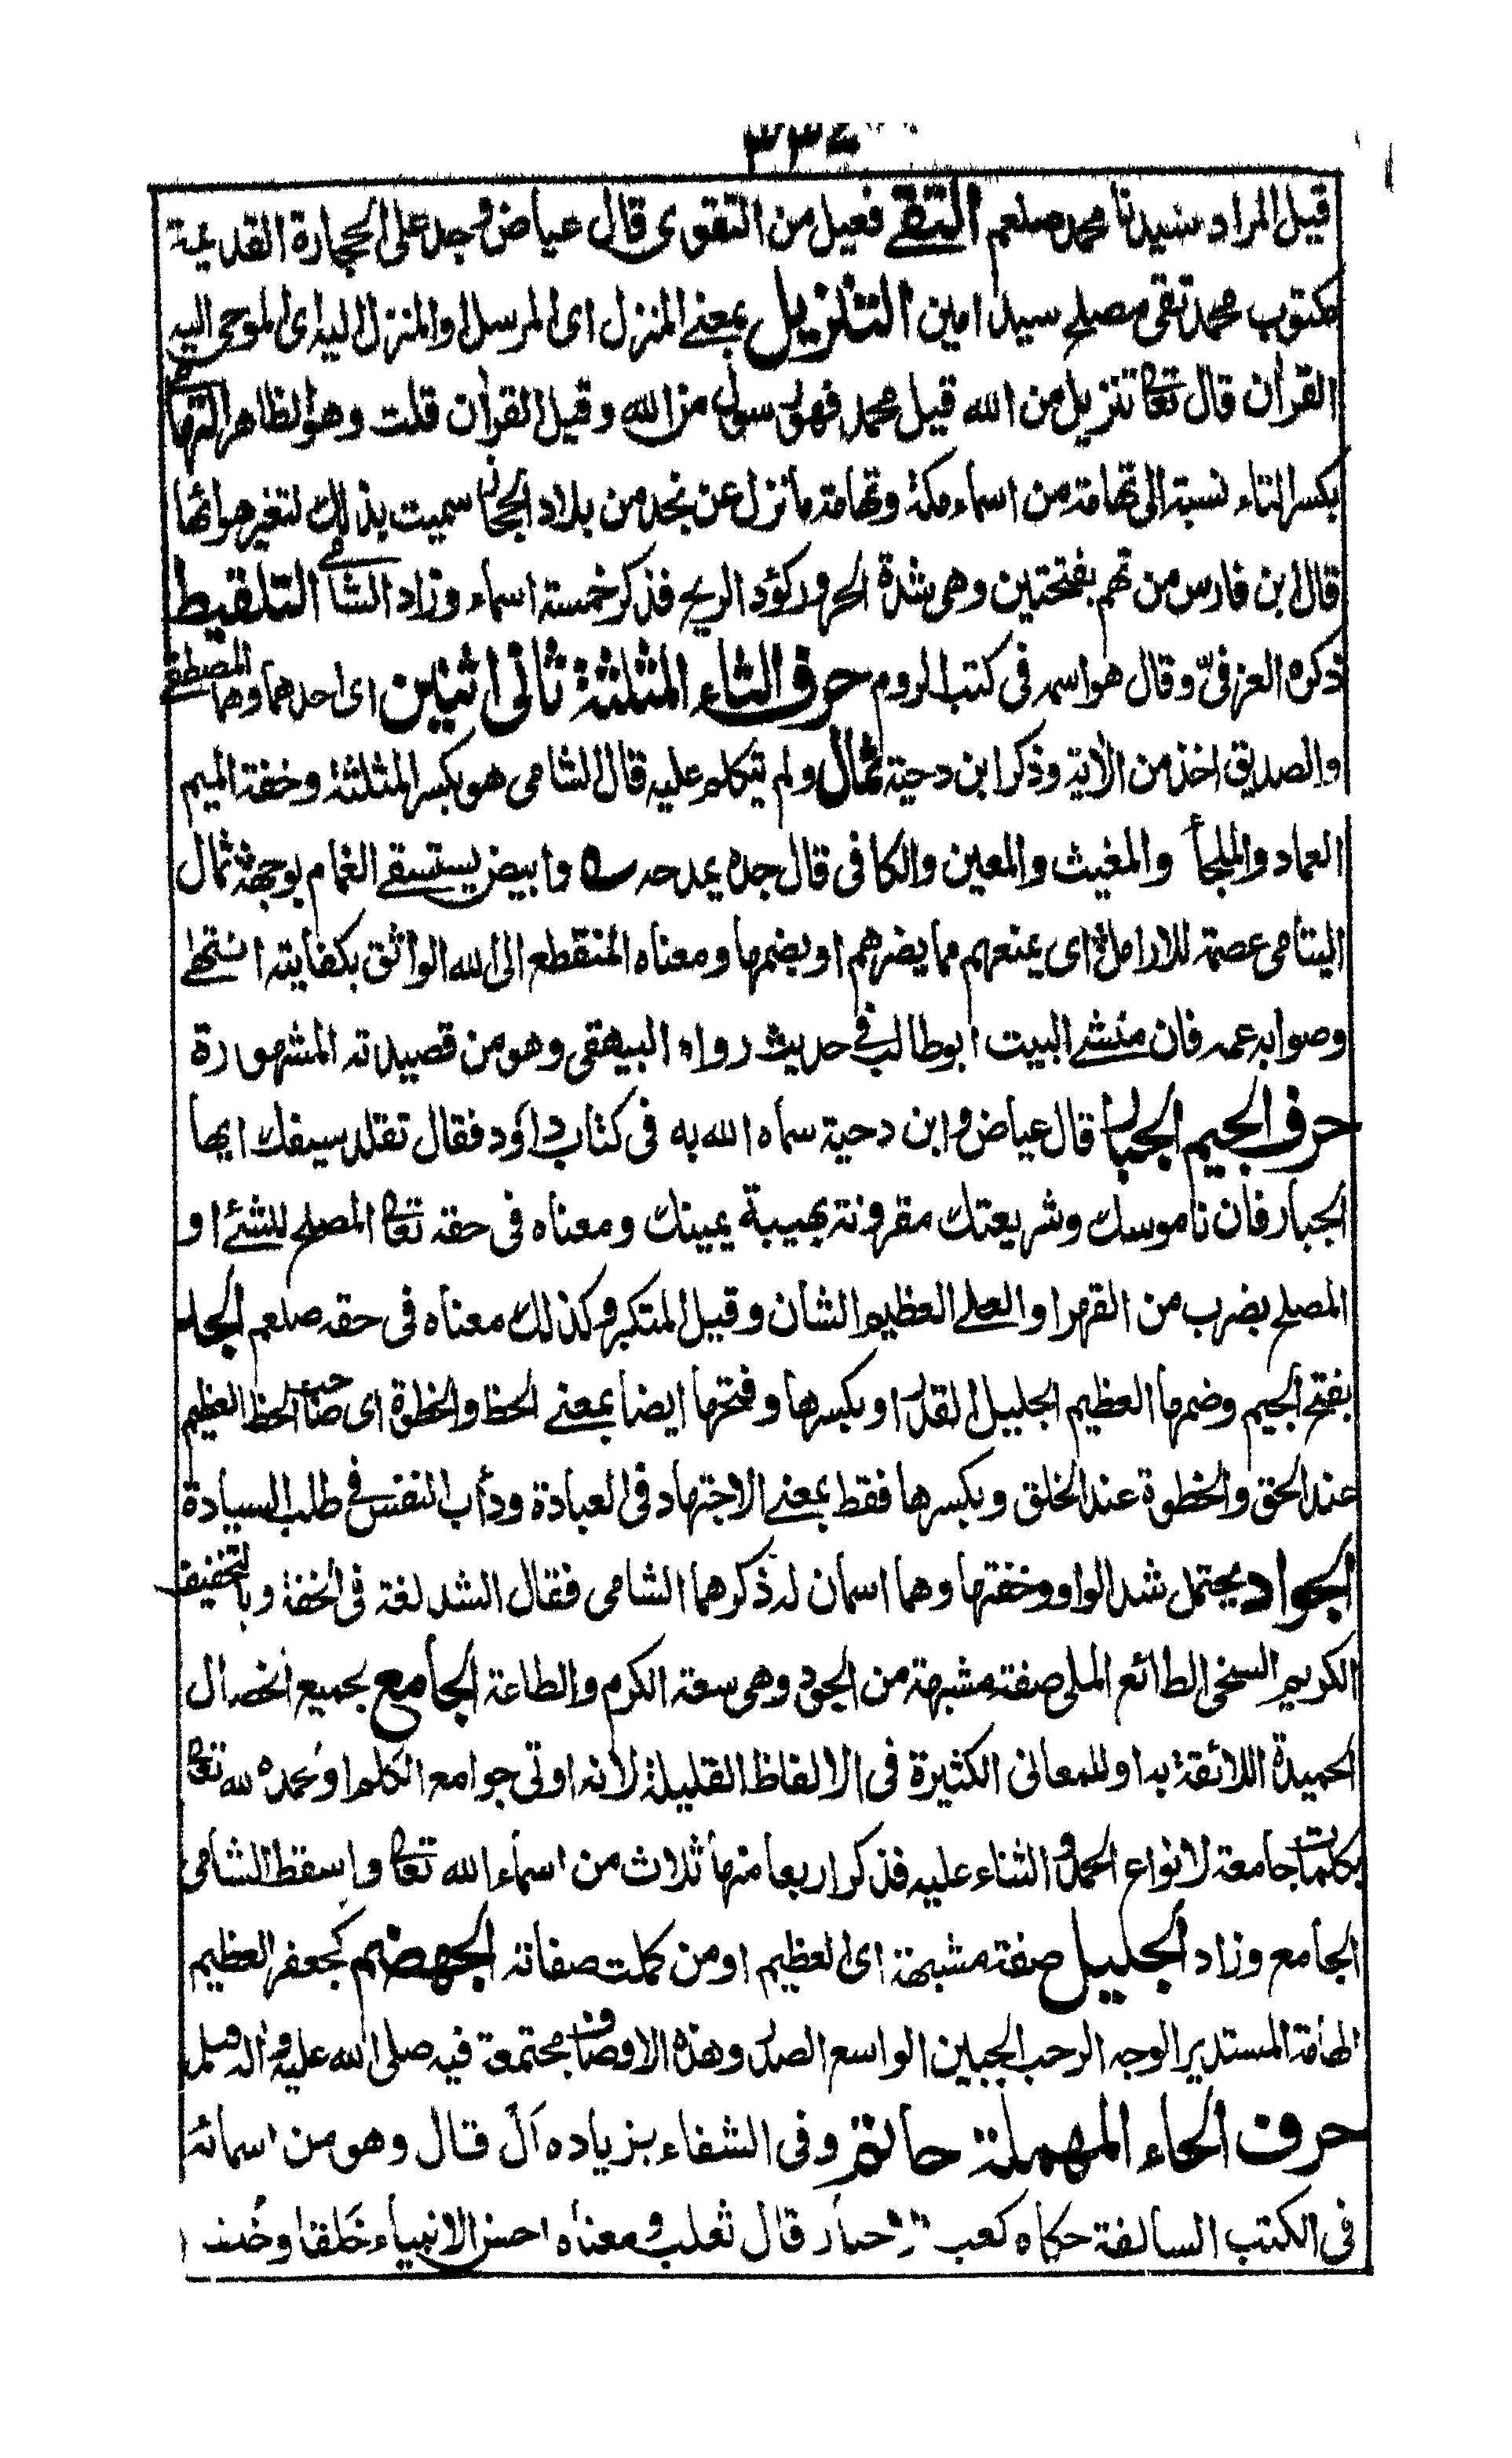 ٣٣٤
قيل المراد سيدنا محمد صلعم التقي فعيل من التقوى قال عياض وجد على الحجارة القديمة
مكتوب محمد تقى مصلح سيد امين التنزيل بمعنى المنزل اى المرسل او المنزل اليه اى الموحى اليه
القرأن قال تعا تنزيل من الله قيل محمد فهو رسول من الله وقيل القرأن قلت وهو الظاهر التهامى
بكسر التاء نسبة الى تهامة من اسماء مكة وتهامة ما نزل عن نجد من بلاد الحجاز سميت بذلك لتغير هوائها
قال ابن فارس من تهم بفتحتين وهى شدة الحر وركود الريح فذكر خمسة اسماء وزاد الشامى التلقيط
ذكره العزفى وقال هو اسمه فى كتب الروم حرف الثاء المثلثة ثانى اثنين اى احدهما وهما المصطفى
والصديق اخذ من الأية وذكر ابن دحية ثمال ولم يتكلم عليه قال الشامى هو بكسر المثلثة وخفة الميم
العماد والملجأ والمغيث والمعين والكافى قال جده يمدحه وابيض يستسقى الغمام بوجهه ثمال
اليتامى عصمة للارامل اى يمنعهم مما يضرهم او بضمها ومعناه المنقطع الى الله الواثق بكفايته انتهى
وصوابه عمه فان منشئ البيت ابو طالب فى حديث رواه البيهقى وهو من قصيدته المشهورة
حرف الجيم الجبار قال عياض وابن دحية سماه الله به فى كتاب داؤد فقال تقلد سيفك ايها
الجبار فان ناموسك وشريعتك مقرونة بهيبة يمينك ومعناه فى حقه تعا المصلح للشئ او
المصلح بضرب من القهر او العلى العظيم الشان وقيل المتكبر وكذلك معناه فى حقه صلعم الجد
بفتح الجيم وضمها العظيم الجليل القدر او بكسرها وفتحها ايضا بمعنى الحظ والخطوة اى صاحب الحظ العظيم
عند الحق والخطوة عند الخلق وبكسرها فقط بمعنى الاجتهاد فى العبادة ودأب النفس فى طلب السيادة
الجواد يحتمل شد الواو وخفتها وهما اسمان له ذكرهما الشامى فقال الشد لغة فى الخفة وبالتخفيف
الكريم السخى الطائع الملى صفة مشبهة من الجود وهى سعة الكرم والطاعة الجامع بجميع الخصال
الحميدة اللائقة به او للمعانى الكثيرة فى الالفاظ القليلة لانه اوتى جوامع الكلم او بحمده لله تعا
بكلمات جامعة لانواع الحمد والثناء عليه فذكر اربعا منها ثلاث من اسماء الله تعا واسقط الشامى
الجامع وزاد الجليل صفة مشبهة اى العظيم او من كملت صفاته الجهضم كجعفر العظيم
الهامة المستدير الوجه الرحب الجبين الواسع الصدر وهذه الاوصاف مجتمعة فيه صلى الله عليه وأله وسلم
حرف الحاء المهملة حاتم وفى الشفاء بزياده اَلْ قال وهو من اسمائه
فى الكتب السالفة حكاه كعب حبار قال ثعلب ومعناه احسن الانبياء خَلقا وخُلقا